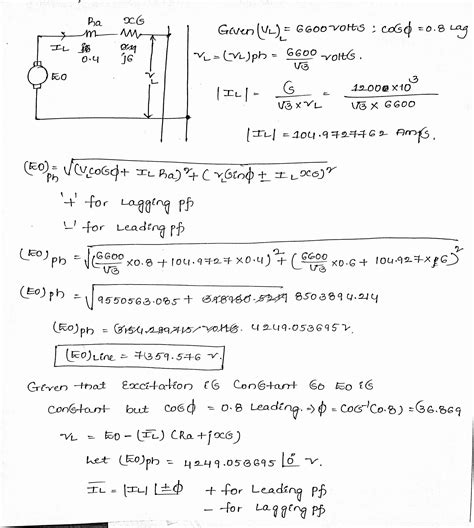 Ra XG
IL 0.4 j6
EO VL
Given (VL) = 6600 volts ; cosϕ = 0.8 Lag
VL = (VL)ph = 6600/√3 volts.
|IL| = G/(√3 × VL) = 1200 × 10³/(√3 × 6600)
|IL| = 104.9727762 Amps.
(EO)ph = √((VL cosϕ + IL Ra)² + (VL sinϕ ± IL XG)²)
'+' for Lagging pf
'-' for Leading pf
(EO)ph = √((6600/√3 × 0.8 + 104.9727 × 0.4)² + (6600/√3 × 0.6 + 104.927 × 6)²)
(EO)ph = √(9550563.085 + 8503894.214)
(EO)ph = 4249.053695 V.
(EO)Line = 7359.576 V.
Given that Excitation is Constant So EO is
constant but cosϕ = 0.8 leading. ⇒ ϕ = cos⁻¹(0.8) = 36.869
VL = EO - (IL) (Ra + jXG)
Let (EO)ph = 4249.053695 ∠0° V.
IL = |IL| ∠±ϕ + for Leading pf
- for Lagging pf